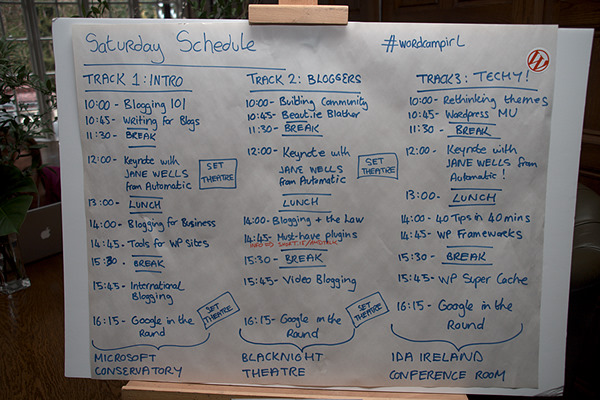 Saturday Schedule
#wordcampirl
TRACK 1: INTRO
10:00 - Blogging 101
10:45 - Writing for Blogs
11:30 - BREAK
12:00 - Keynote with
JANE WELLS
from Automatic
SET
THEATRE
13:00 - LUNCH
14:00 - Blogging for Business
14:45 - Tools for WP Sites
15:30 - BREAK
15:45 - International
Blogging
16:15 - Google in the
Round
SET
THEATRE
MICROSOFT
CONSERVATORY
TRACK 2: BLOGGERS
10:00 - Building Community
10:45 - Beaut.ie Blather
11:30 - BREAK
12:00 - Keynote with
JANE WELLS
from Automatic
SET
THEATRE
LUNCH
14:00 - Blogging + the Law
14:45 - Must-have plugins
15:30 - BREAK
15:45 - Video Blogging
16:15 - Google in the
Round
SET
THEATRE
BLACKNIGHT
THEATRE
TRACK 3: TECHY!
10:00 - Rethinking themes
10:45 - Wordpress MU
11:30 - BREAK
12:00 - Keynote with
JANE WELLS from
Automatic!
13:00 - LUNCH
14:00 40 Tips in 40 mins
14:45 - WP Frameworks
15:30 - BREAK
15:45 - WP Super Cache
16:15 - Google in the
Round
IDA IRELAND
CONFERENCE ROOM